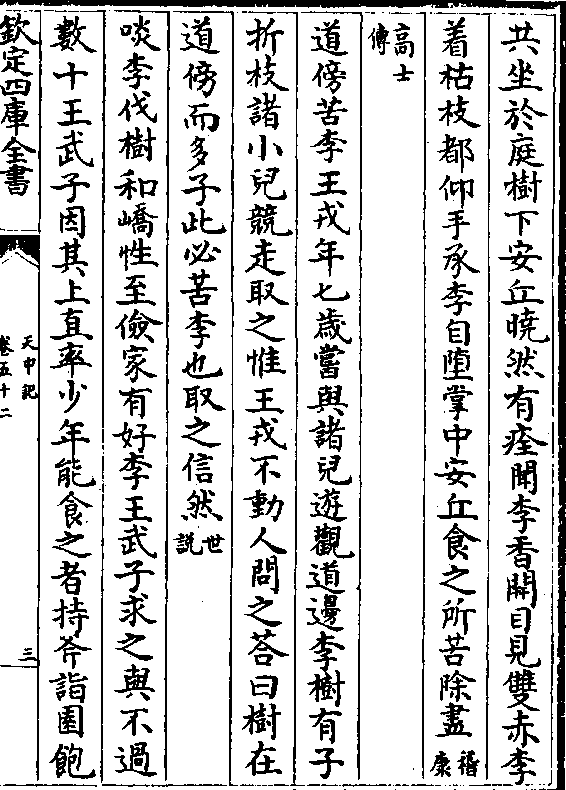 共坐於庭樹下安丘曉然有痊聞李香開目見雙赤李
着枯枝都仰手承李自堕掌中安丘食之所苦除盡嵇康
高士傳
道傍苦李王戎年七歲嘗與諸兒遊觀道邊李樹有子
折枝諸小兒競走取之惟王戎不動人問之荅曰樹在
道傍而多子此必苦李也取之信然世説
啖李伐樹和嶠性至儉家有好李王武子求之與不過
數十王武子因其上直率少年能食之者持斧詣園飽
欽定四庫全書
天中記
卷五十二
三